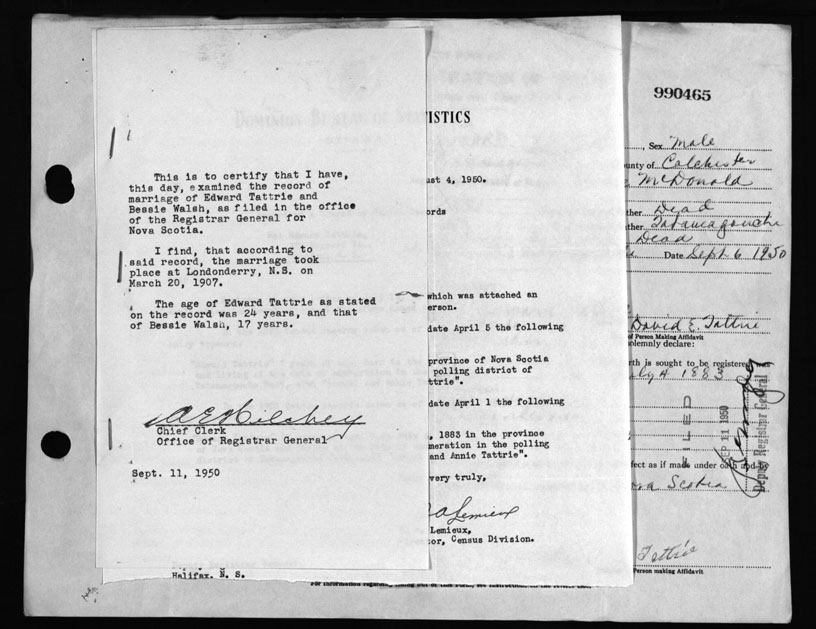 This is to certify that I have,
this day, examined the record of
marriage of Edward Tattrie and
Bessie Walsh, as filed in the office
of the Registrar General for
Nova Scotia.
I find, that according to
said record, the marriage took
place at Londonderry, N.S. on
March 20, 1907.
The age of Edward Tattrie as stated
on the record was 24 years, and that
of Bessie Walsh, 17 years.
Chief Clerk
Office of Registrar General
Sept. 11, 1950
Halifax, N. S.
DOMINION BUREAU OF STATISTICS
ust 4, 1950.
ords
which was attached an
erson.
date April 5 the following
province of Nova Scotia
polling district of
ttrie".
date April 1 the following
, 1883 in the province
meration in the polling
and Annie Tattrie".
very truly,
Lemieux
Lemieux,
or, Census Division.
990465
, Sex Male
unty of Colchester
McDonald
ther Dead
ther Tatamagouche
Dead
Date Sept 6 1950
David E. Tattrie
of Person Making Affidavit
olemnly declare:
rth is sought to be registered
ly 4 1883
FILED
SEP 11 1950
Deputy Registrar General
fect as if made under oath and by
ova Scotia
Tattrie
Person making Affidavit